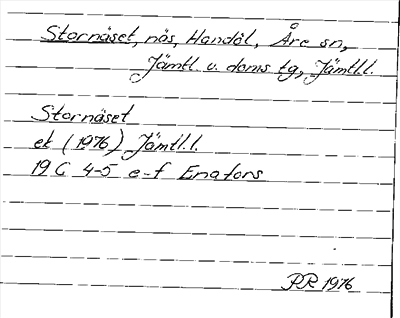 Stornäset, näs, Handöl, Åre sn,
Jämtl. v. doms tg, Jämtl.l.
Stornäset
ek (1976) Jämtl.l.
19 C 4-5 e-f Enafors
PR 1976